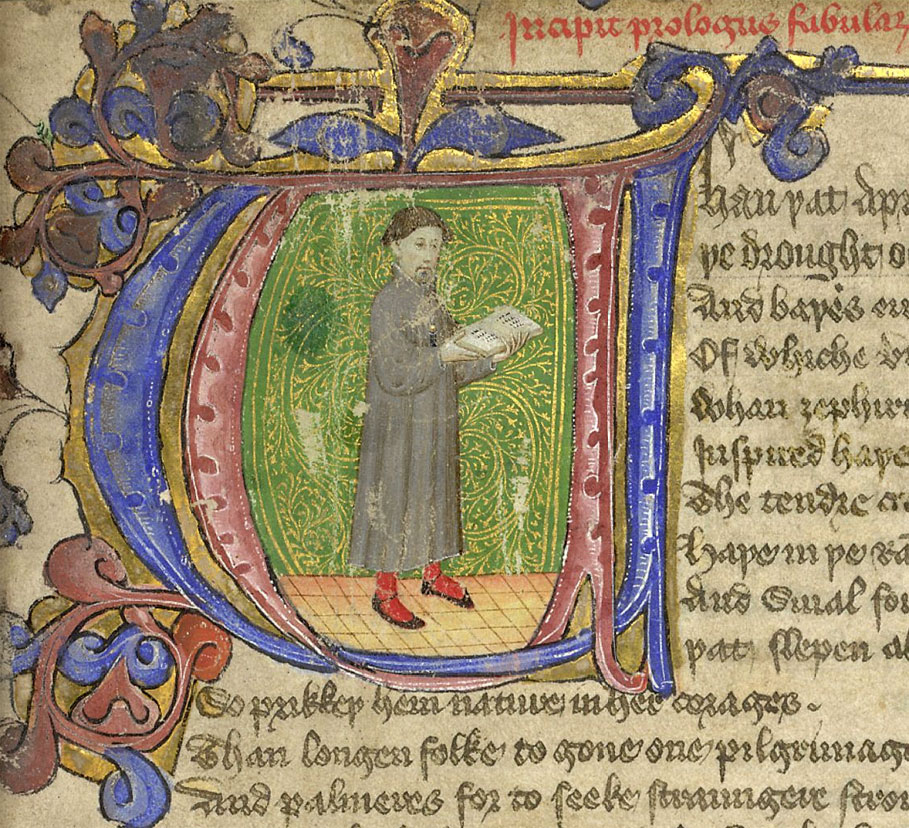 Incipit prologus fabular
Whan þat Apr
þe drought o
And baþes eu
Of whiche v
Whan zephir
Inspired haþe
The tendre cr
Haþe in þe Ra
And Smal fou
þat slepen al
So prikkeþ hem nature in her corages .
Than longen folke to gone one pilgrimage
And palmeres for to seeke straungere stron